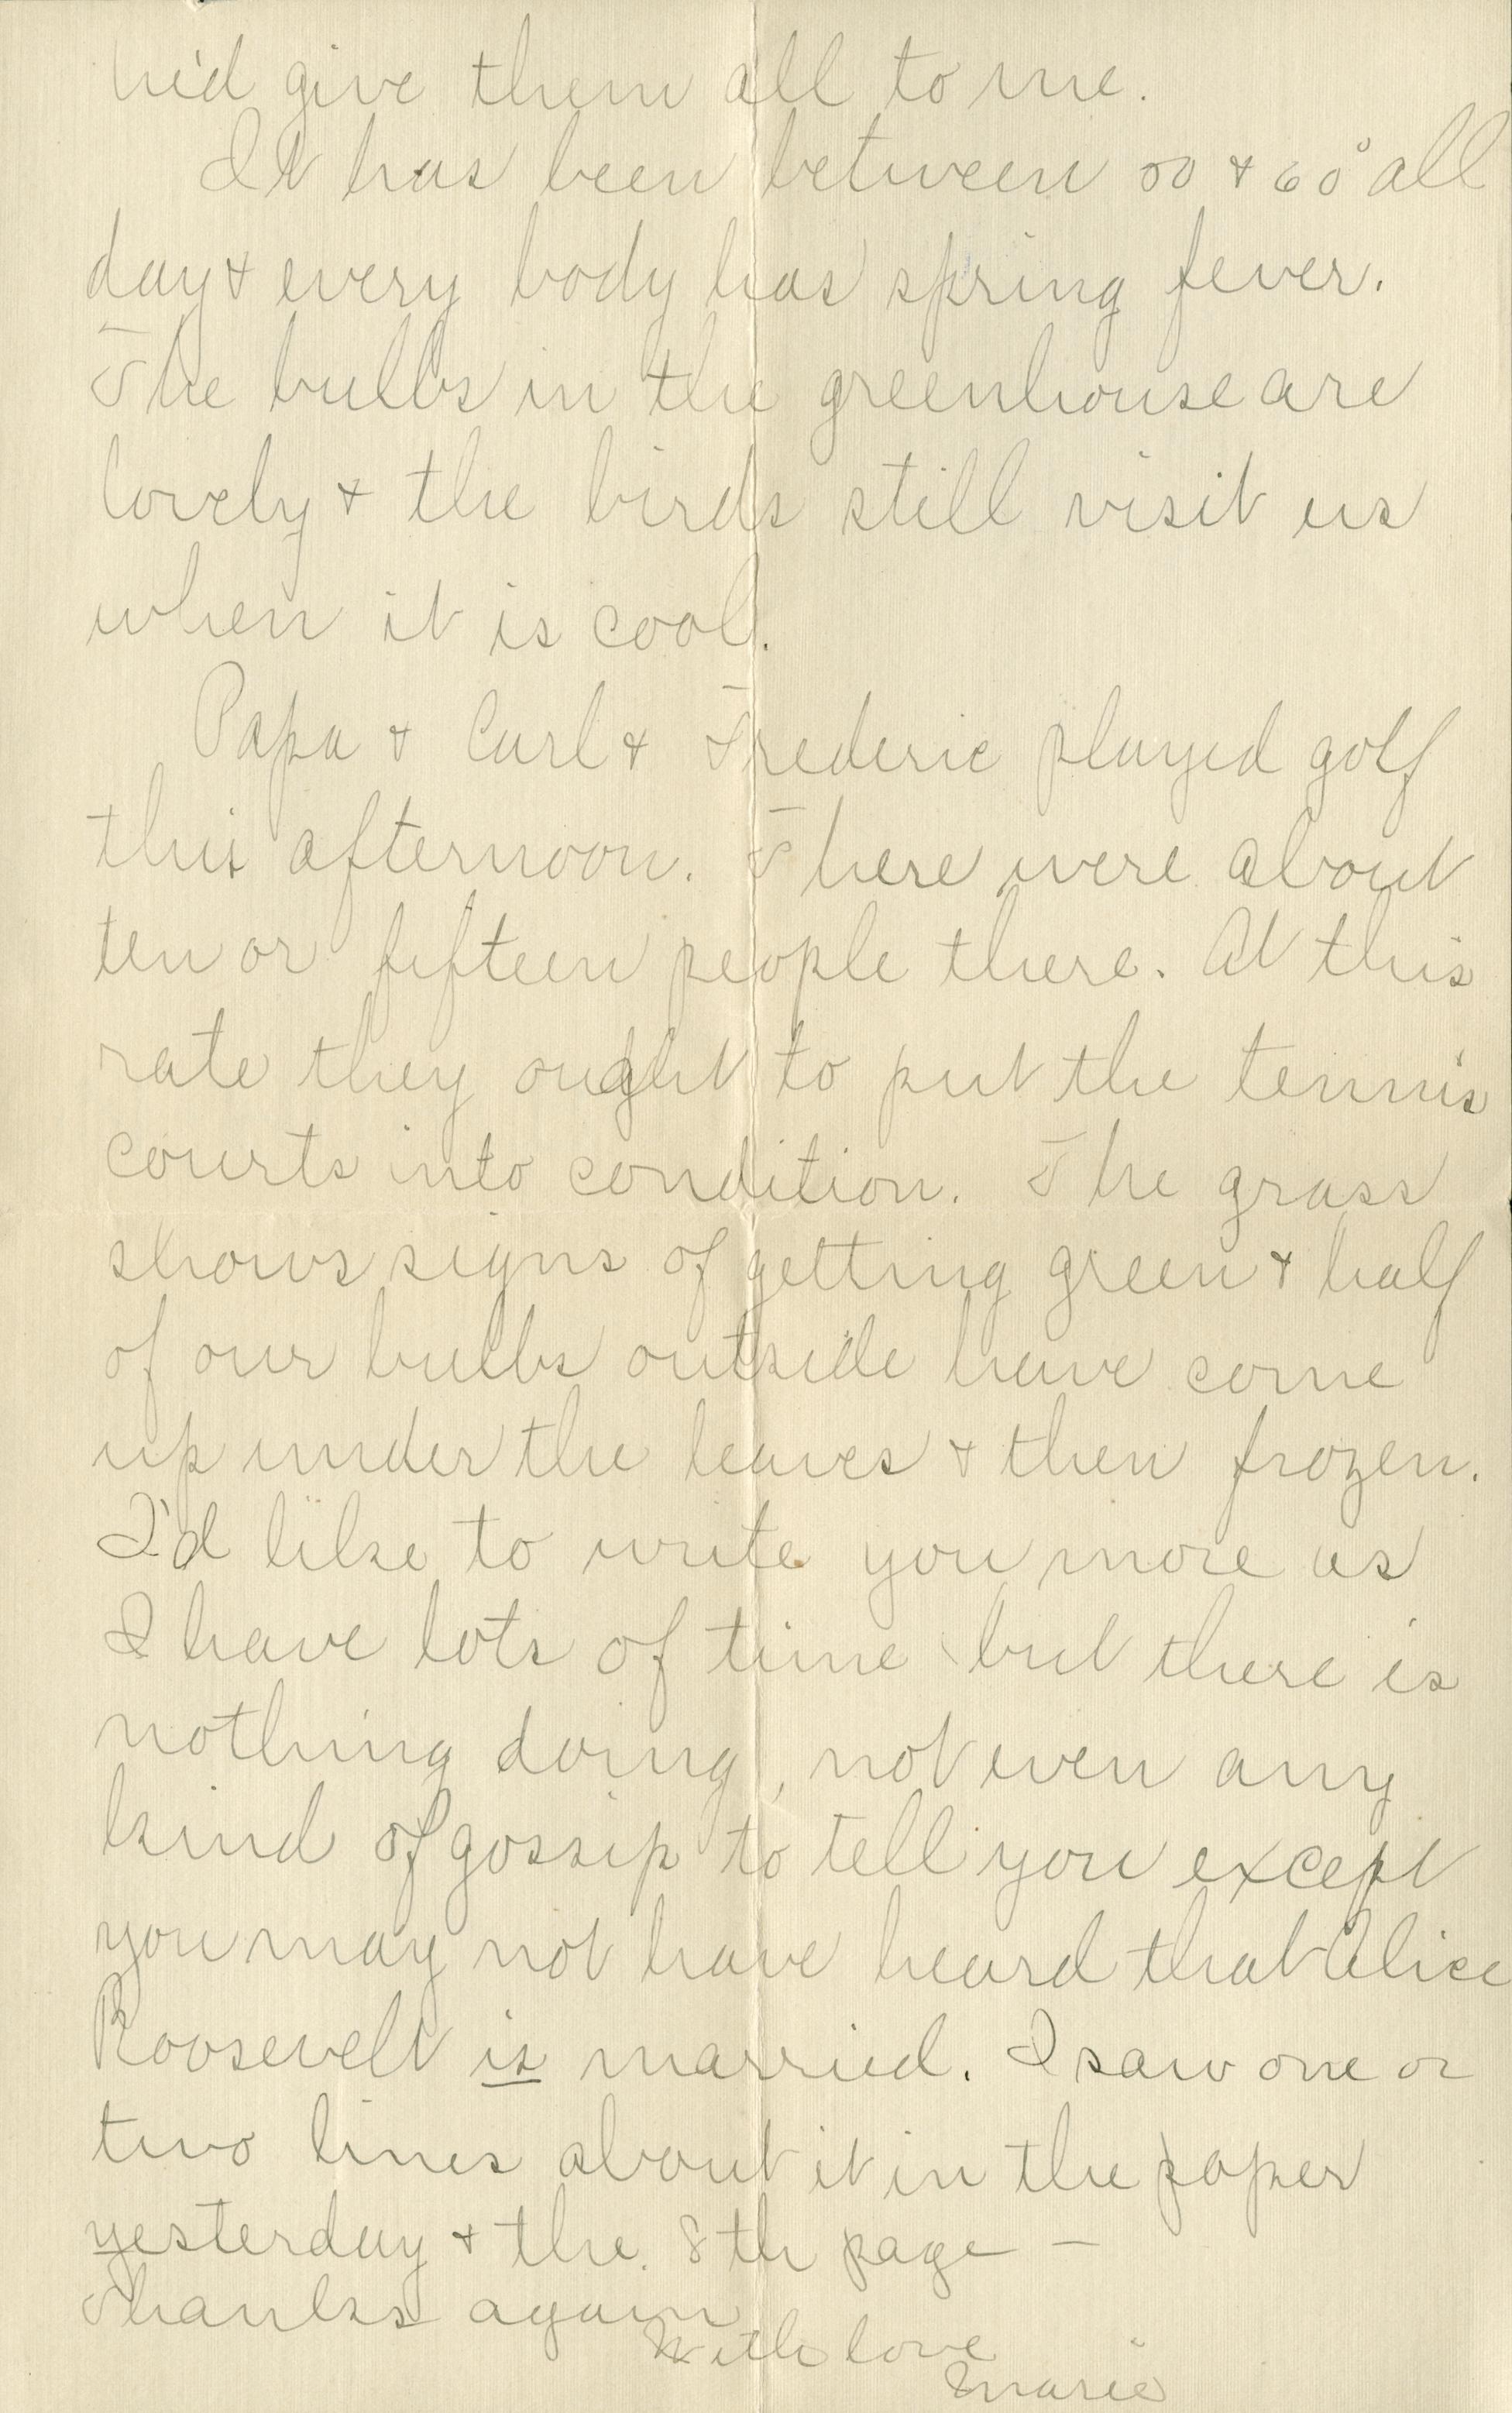 he'd give them all to me.
It has been between 50 & 60° all
day & every body has spring fever.
The bulbs in the greenhouse are
lovely & the birds still visit us
when it is cool.
Papa & Carl & Frederic played golf
this afternoon. There were about
ten or fifteen people there. At this
rate they ought to put the tennis
courts into condition. The grass
shows signs of getting green & half
of our bulbs outside have come
up under the leaves & then frozen.
I'd like to write you more as
I have lots of time but there is
nothing doing, not even any
kind of gossip to tell you except
you may not have heard that Alice
Roosevelt is married. I saw one or
two lines about it in the paper
yesterday & the 8th page —
Thanks again
With love
Marie